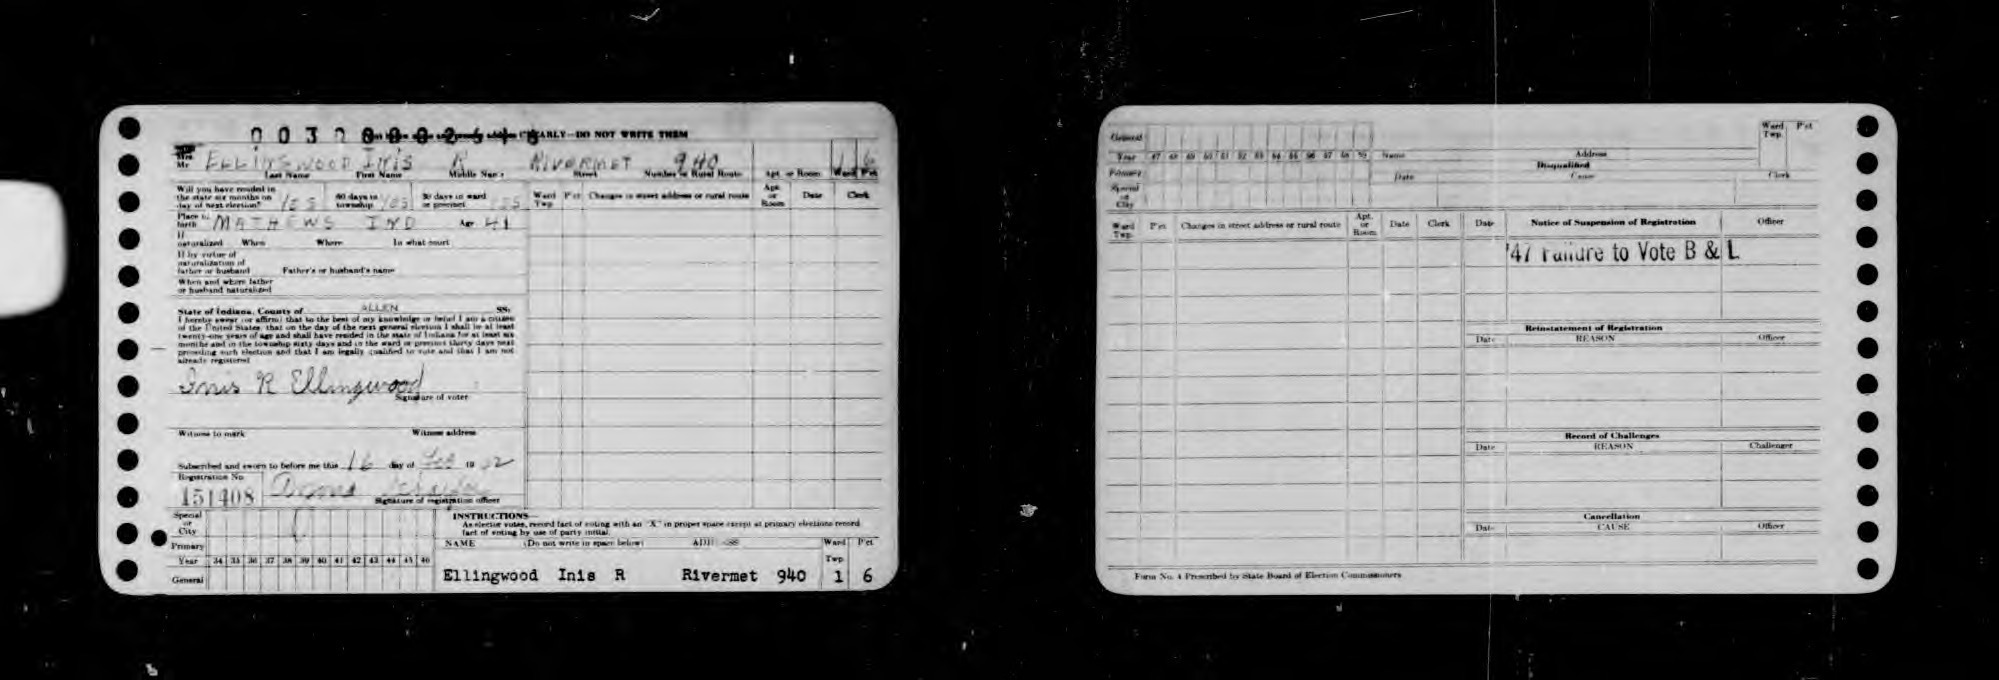 0 0 3 2 0 0 0 2 4 1 8 CLEARLY—DO NOT WRITE THEM
Mrs.
Mr. ELLINGWOOD INIS R RIVERMET 940 1 6
Last Name First Name Middle Name Street Number or Rural Route Apt. or Room Ward Pct
Will you have resided in
the state six months on
day of next election? YES 60 days in
township YES 30 days in ward
or precinct YES
Place of
birth MATHEWS IND Age 41
If
naturalized When Where In what court
If by virtue of
naturalization of
father or husband Father's or husband's name
When and where father
or husband naturalized
State of Indiana, County of ALLEN SS:
I hereby swear (or affirm) that to the best of my knowledge or belief I am a citizen
of the United States, that on the day of the next general election I shall be at least
twenty-one years of age and shall have resided in the state of Indiana for at least six
months and in the township sixty days and in the ward or precinct thirty days next
preceding such election and that I am legally qualified to vote and that I am not
already registered
Inis R Ellingwood
Signature of voter
Witness to mark Witness address
Subscribed and sworn to before me this 16 day of Feb 19
Registration No.
151408
Signature of registration officer
Ward
Twp. Pct Changes in street address or rural route Apt.
or
Room Date Clerk
Special
or
City
Primary
Year 34 35 36 37 38 39 40 41 42 43 44 45 46
General
INSTRUCTIONS—
As elector votes, record fact of voting with an "X" in proper space except at primary elections record
fact of voting by use of party initial.
NAME (Do not write in space below) ADDRESS Ward
Twp. Pct
Ellingwood Inis R Rivermet 940 1 6
General
Year 47 48 49 50 51 52 53 54 55 56 57 58 59 Name Address Ward
Twp. Pct
Primary
Special
or
City
Disqualified
Date Cause Clerk
Ward
Twp. Pct Changes in street address or rural route Apt.
or
Room Date Clerk
Date Notice of Suspension of Registration Officer
'47 Failure to Vote B & L
Reinstatement of Registration
Date REASON Officer
Record of Challenges
Date REASON Challenger
Cancellation
Date CAUSE Officer
Form No. 4 Prescribed by State Board of Election Commissioners